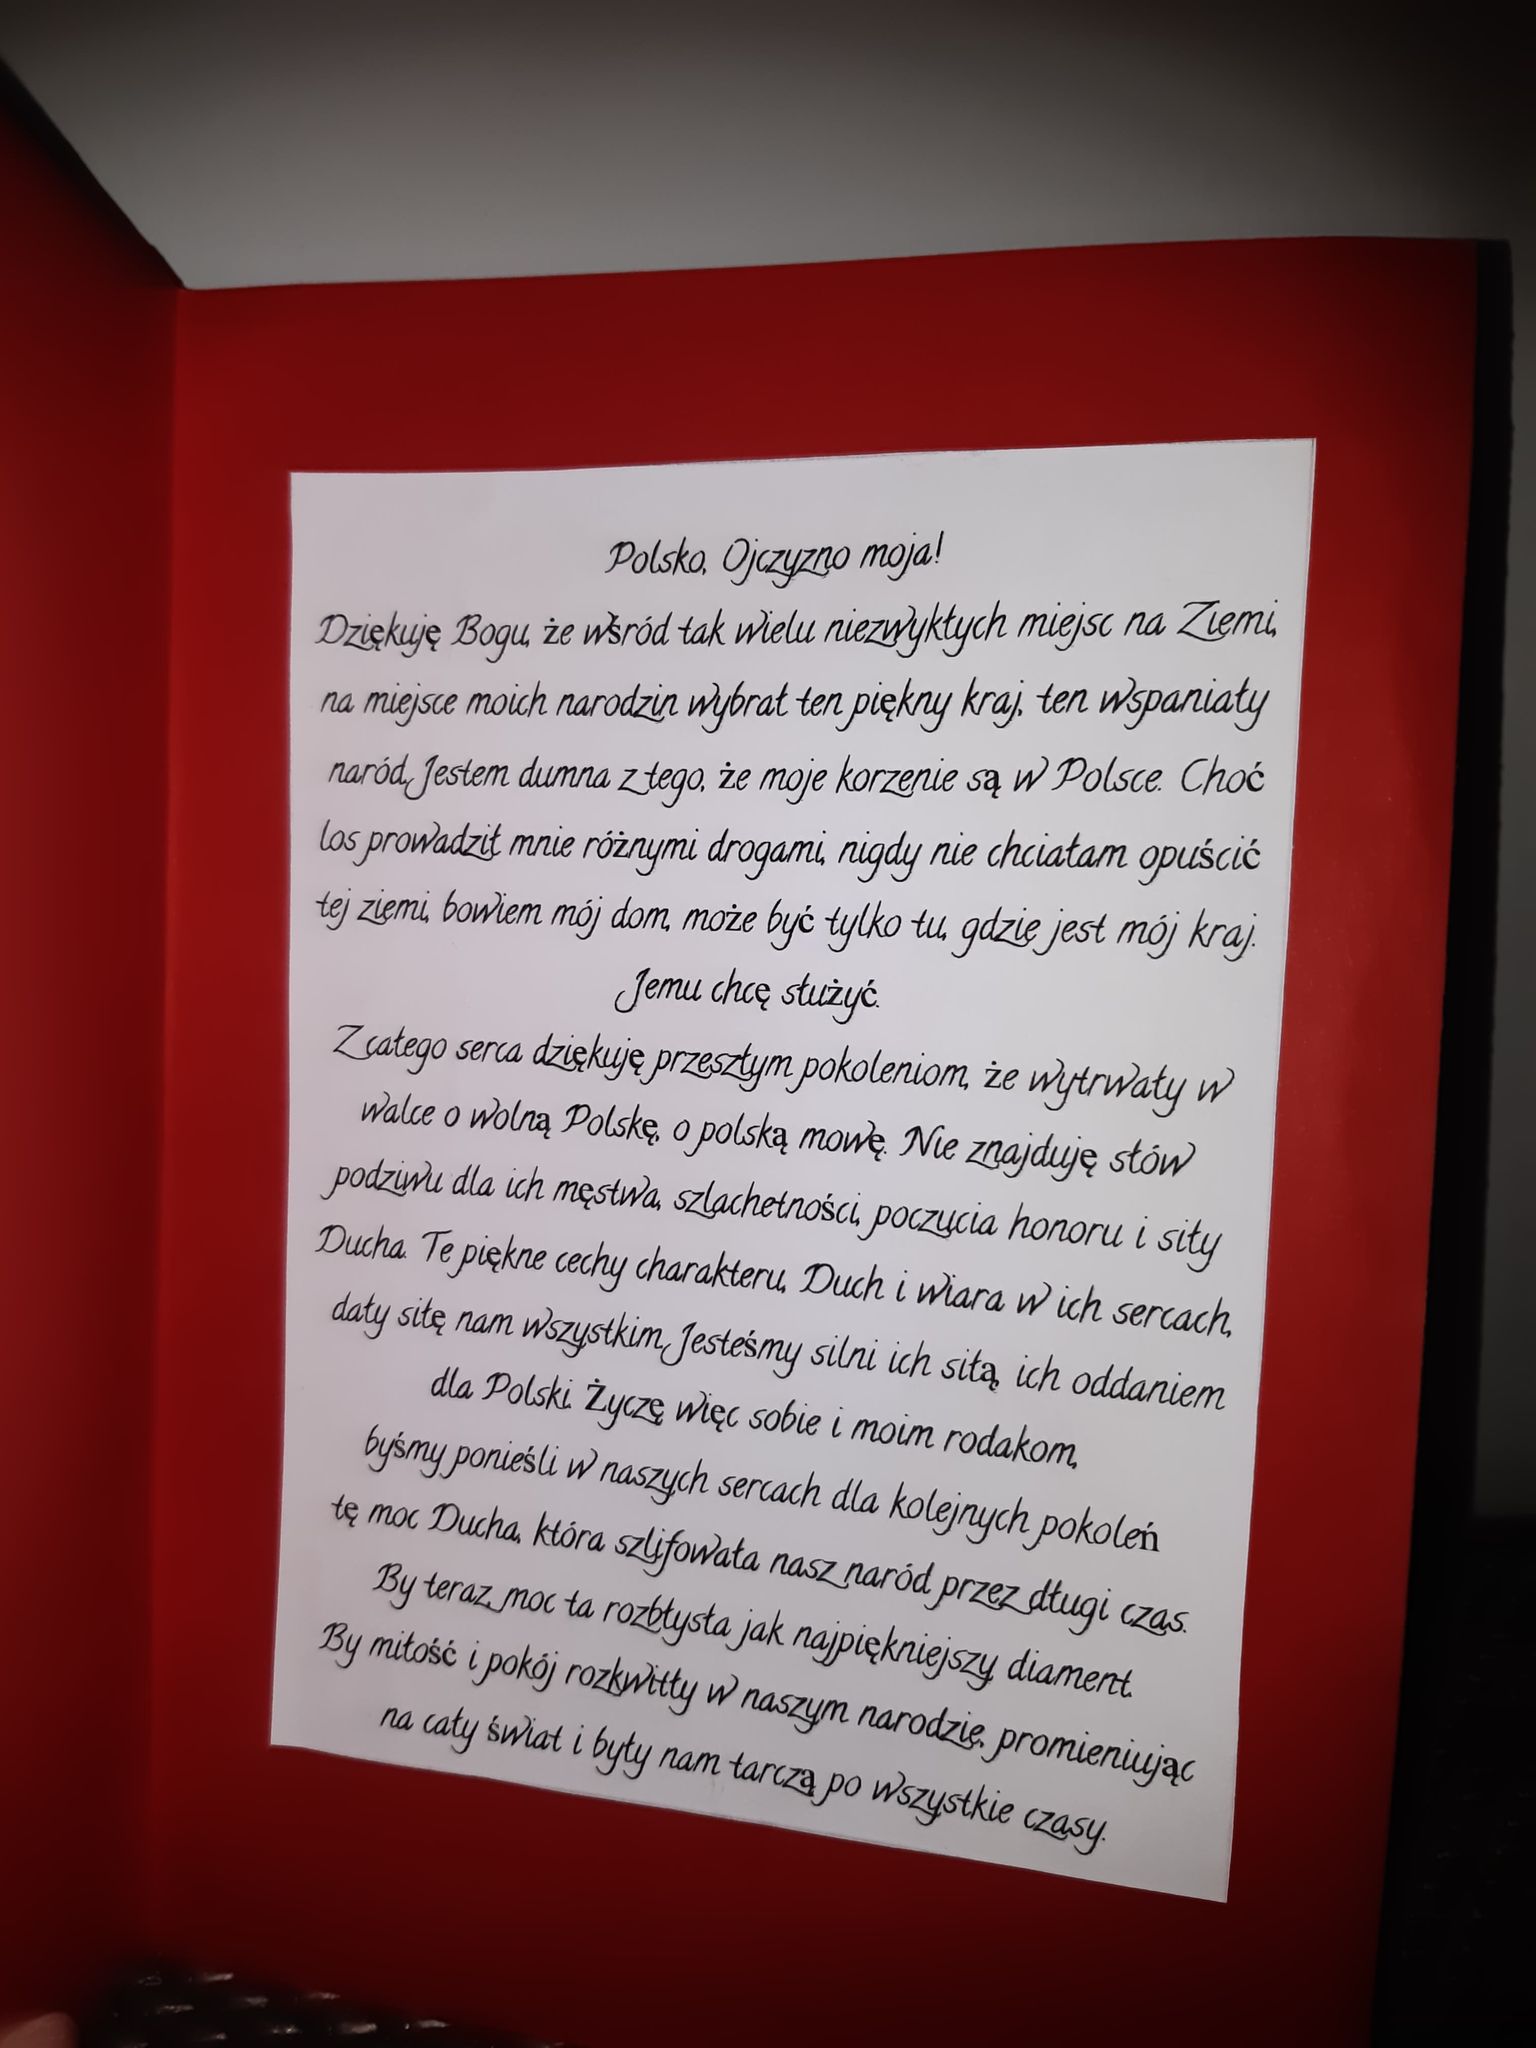 Polsko, Ojczyzno moja!
Dziękuję Bogu, że wśród tak wielu niezwykłych miejsc na Ziemi,
na miejsce moich narodzin wybrał ten piękny kraj, ten wspaniały
naród. Jestem dumna z tego, że moje korzenie są w Polsce. Choć
los prowadził mnie różnymi drogami, nigdy nie chciałam opuścić
tej ziemi, bowiem mój dom, może być tylko tu, gdzie jest mój kraj.
Jemu chcę służyć.
Z całego serca dziękuję przeszłym pokoleniom, że wytrwały w
walce o wolną Polskę, o polską mowę. Nie znajduję słów
podziwu dla ich męstwa, szlachetności, poczucia honoru i siły
Ducha. Te piękne cechy charakteru, Duch i wiara w ich sercach,
dały siłę nam wszystkim. Jesteśmy silni ich siłą, ich oddaniem
dla Polski. Życzę więc sobie i moim rodakom,
byśmy ponieśli w naszych sercach dla kolejnych pokoleń
tę moc Ducha, która szlifowała nasz naród przez długi czas.
By teraz, moc ta rozbłysła jak najpiękniejszy diament.
By miłość i pokój rozkwitły w naszym narodzie, promieniując
na cały świat i były nam tarczą po wszystkie czasy.